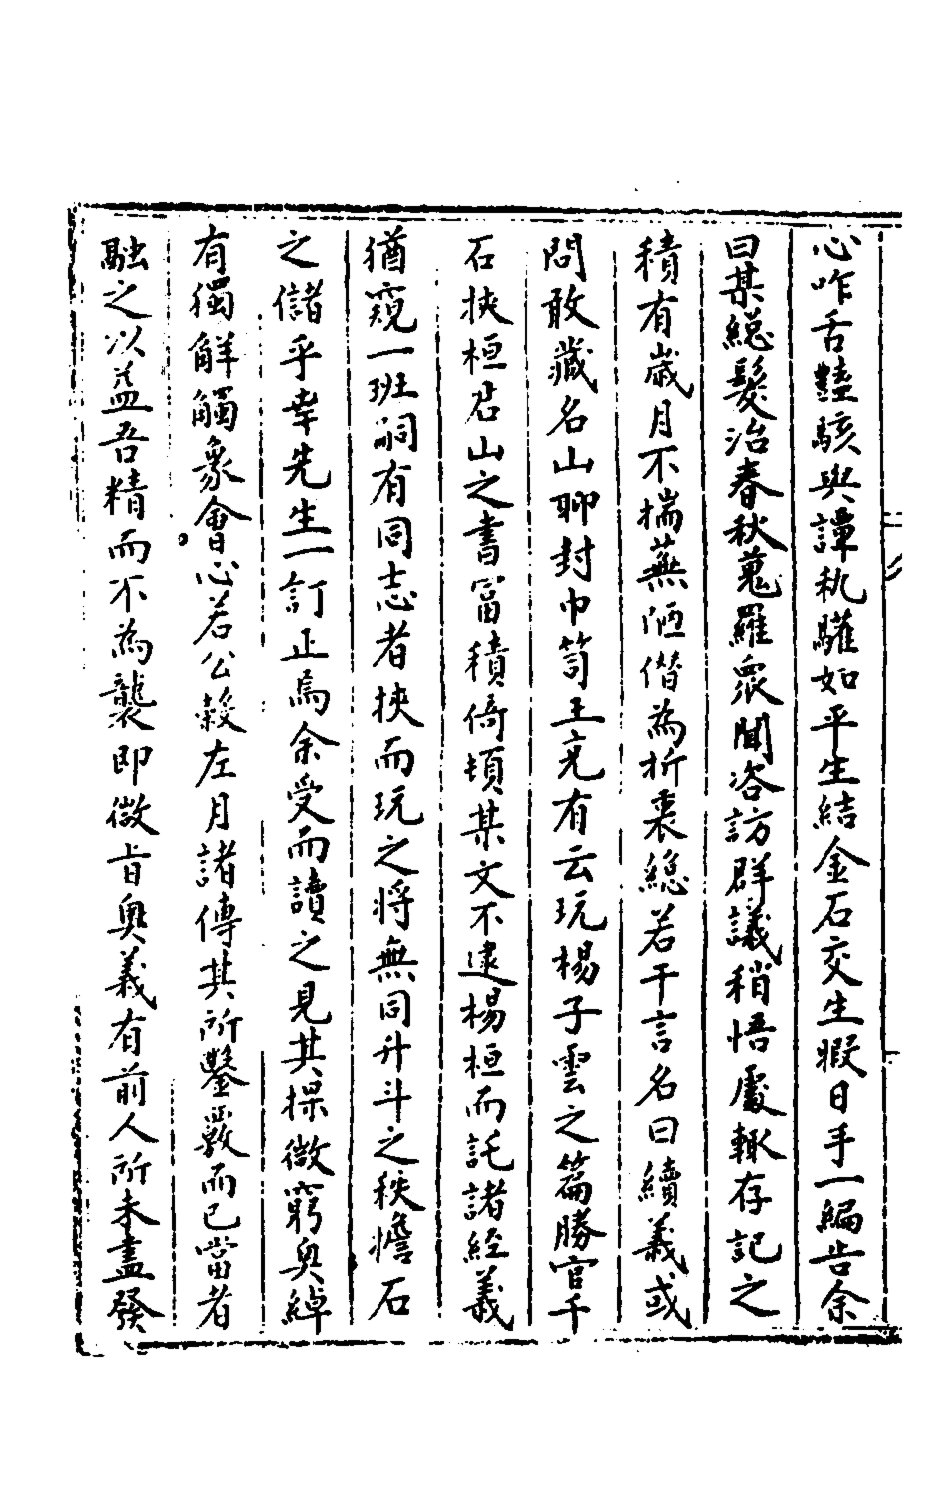 心咋舌豔駭與譚執驩如平生結金石交生暇日手一編告余
曰某總髮治春秋蒐羅眾聞咨訪群議稍悟處輒存記之
積有歲月不揣蕪陋僭為折衷總若干言名曰續義或
問敢藏名山聊封巾笥王充有云玩楊子雲之篇勝官千
石挾桓君山之書富積倚頓某文不逮楊桓而託諸經義
猶窺一班嗣有同志者挾而玩之將無同升斗之秩儋石
之儲乎幸先生一訂正焉余受而讀之見其探微窮奧綽
有獨解觸象會心若公穀左月諸傳其所鑿覈而已當者
融之以益吾精而不為襲即微旨奧義有前人所未盡發